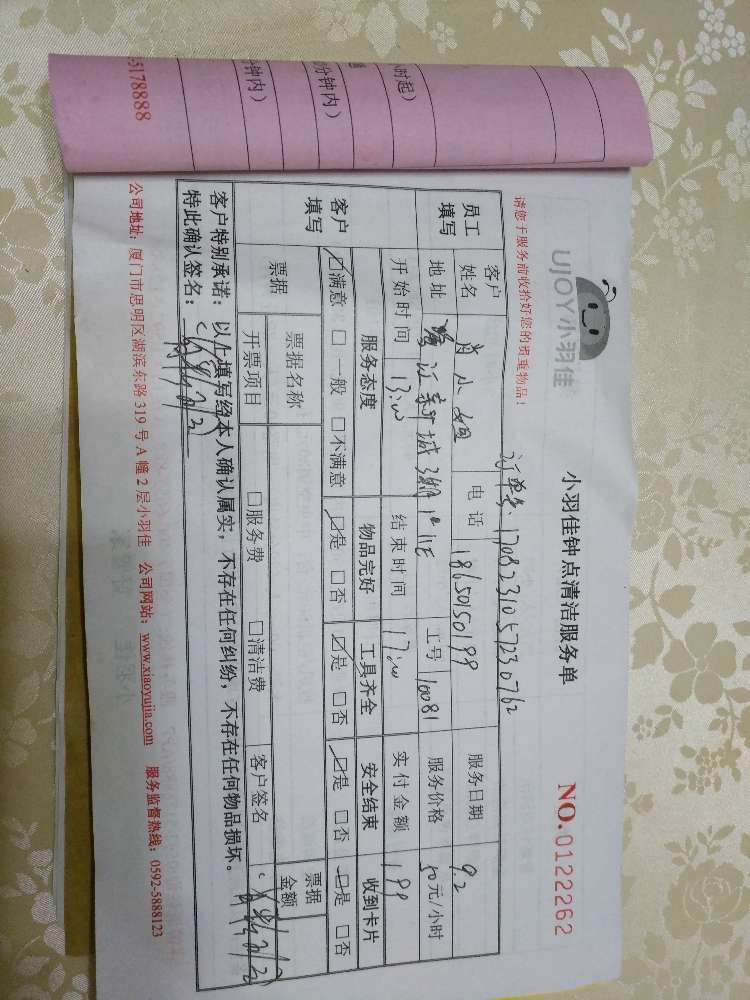 时起）
分钟内）
钟内）
5178888
UJOY小羽佳
小羽佳钟点清洁服务单
NO.0122262
请您于服务前收拾好您的贵重物品！
订单号：1708231057230762
员工填写
客户姓名
肖小姐
电话
18650150199
服务日期
9.2
地址
江新城3期
11E
工号
10081
服务价格
50元/小时
开始时间
13:00
结束时间
17:00
实付金额
199
客户填写
服务态度
物品完好
工具齐全
安全结束
收到卡片
☑满意 □一般 □不满意
☑是 □否
☑是 □否
☑是 □否
☑是 □否
票据
票据名称
票据金额
开票项目
□服务费 □清洁费
客户签名
客户特别承诺：以上填写经本人确认属实，不存在任何纠纷，不存在任何物品损坏。
特此确认签名：
公司地址：厦门市思明区湖滨东路319号A幢2层小羽佳 公司网站：www.xiaoyujia.com 服务监督热线：0592-5888123